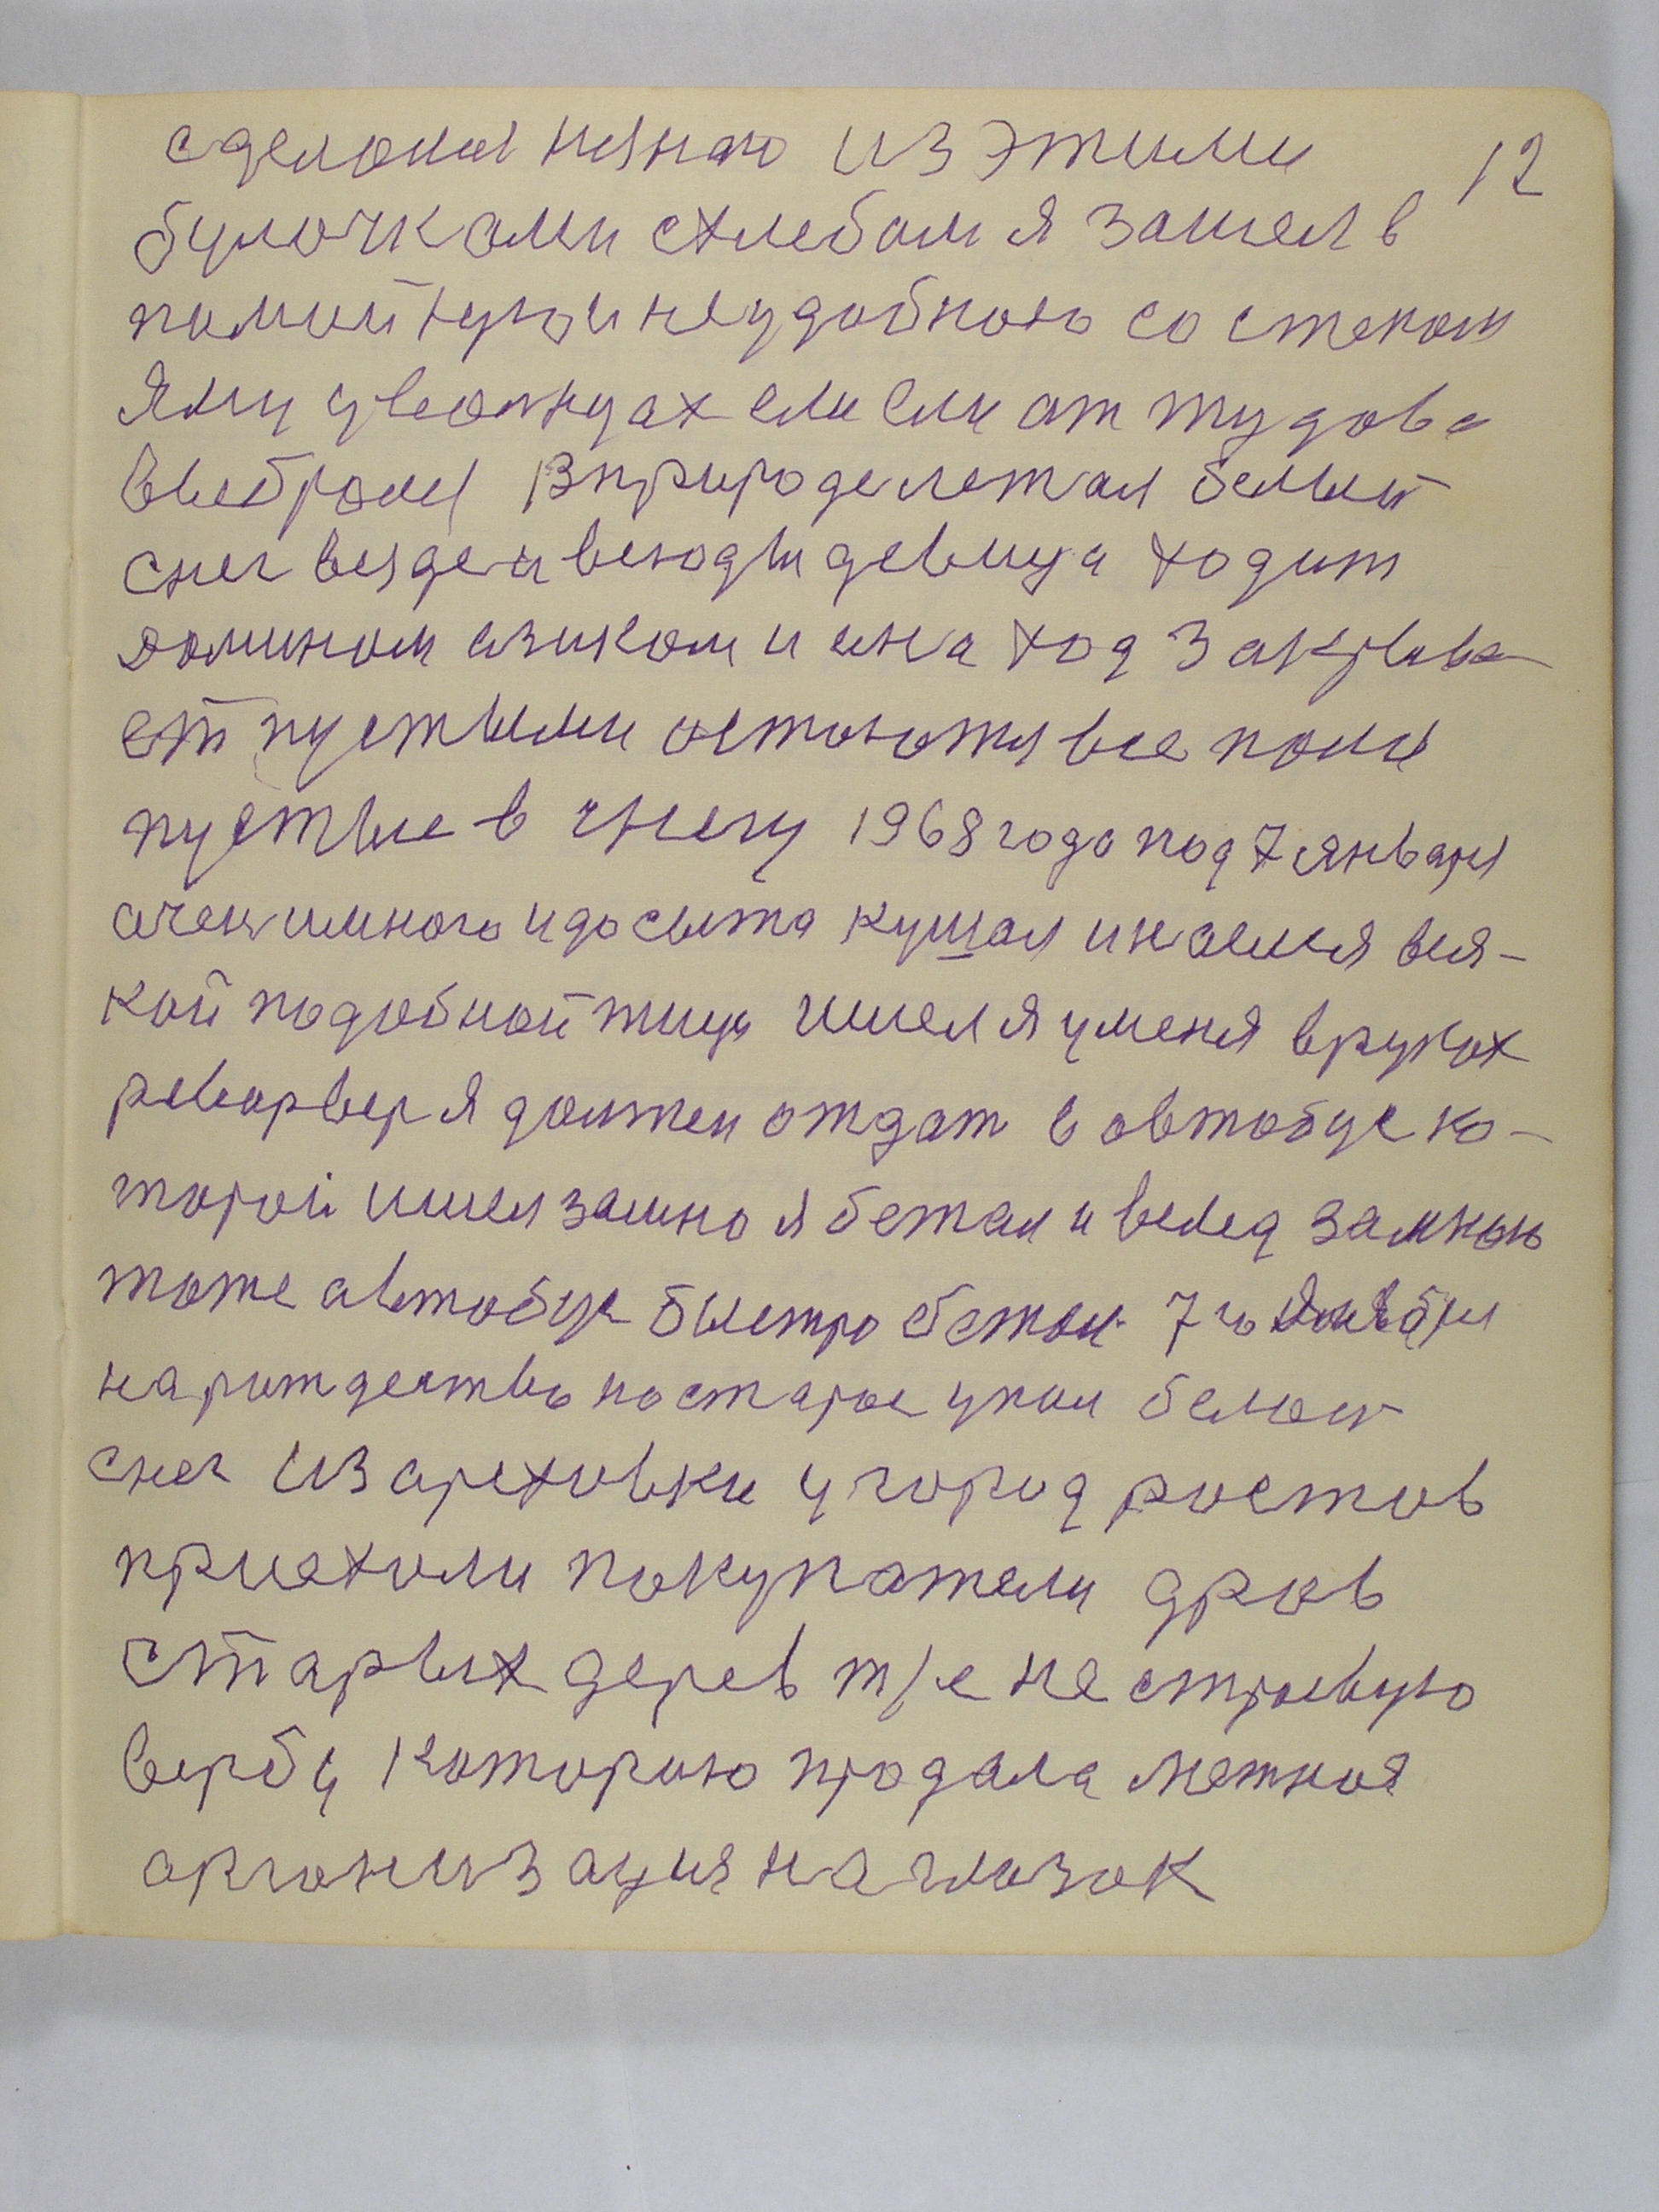 сделаны низнаю из этими 12
булочками схлебам я зашел в
памойную и неудобною со стеком
яму уваннах еле ели от тудова
выброл Вприроде лежал белый
снег везде и всюды девица ходит
долином изиком и ина ход закрыва-
ет пустыми остаются все поли
пустые в снегу 1968 года под 7 января
очен имного идосыта кушал инаелся вся-
кой подобной пищи шшел я уменя вруках
реворвер я должен отдат в автобус ко-
торой шшел замно я бежал и вслед замною
тоже автобус быстро бежал 7 го января
нарождество постарое упал белой
снег из ореховки угород ростов
приехоли покупатели дров
старых дерев т/е не строевую
вербу которою продала местноя
органнизация наглазок